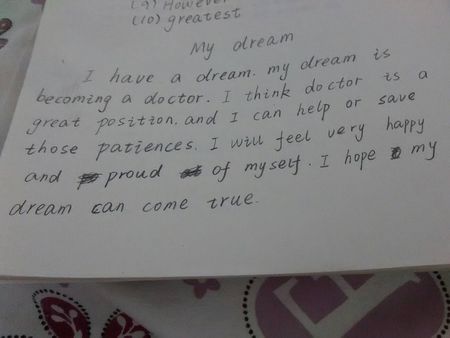 (9) However
(10) greatest
My dream
I have a dream. my dream is
becoming a doctor. I think doctor is a
great position. and I can help or save
those patiences. I will feel very happy
and proud of myself. I hope my
dream can come true.